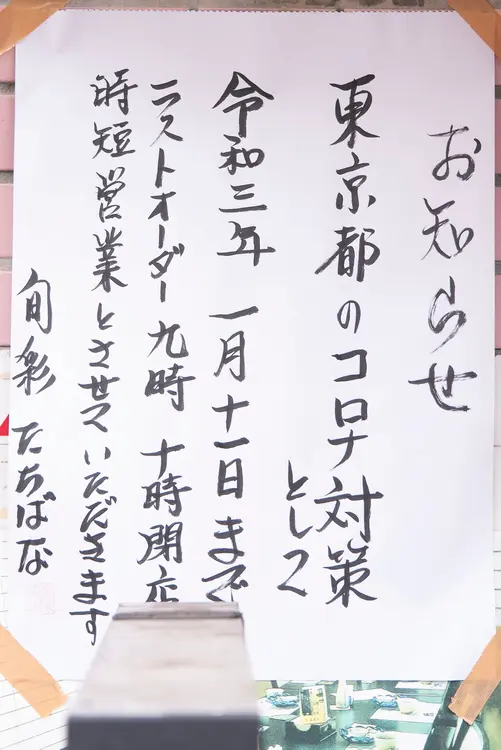 お知らせ
東京都のコロナ対策
として
令和三年 一月十一日まで
ラストオーダー九時 十時閉店
時短営業とさせていただきます
旬彩 たちばな